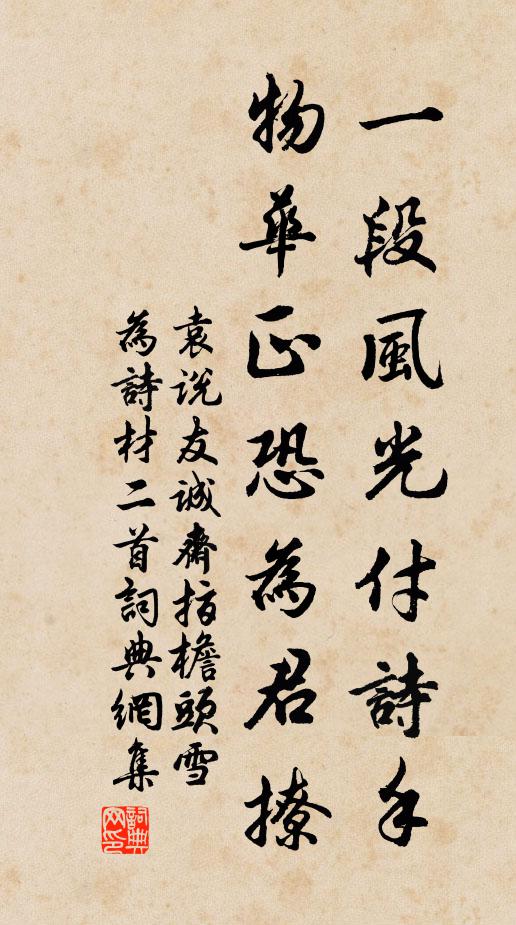 一段風光付詩手
物華正恐為君撩
袁説友誠齋指檐頭雪
為詩材二首詞典網集
詞典網印